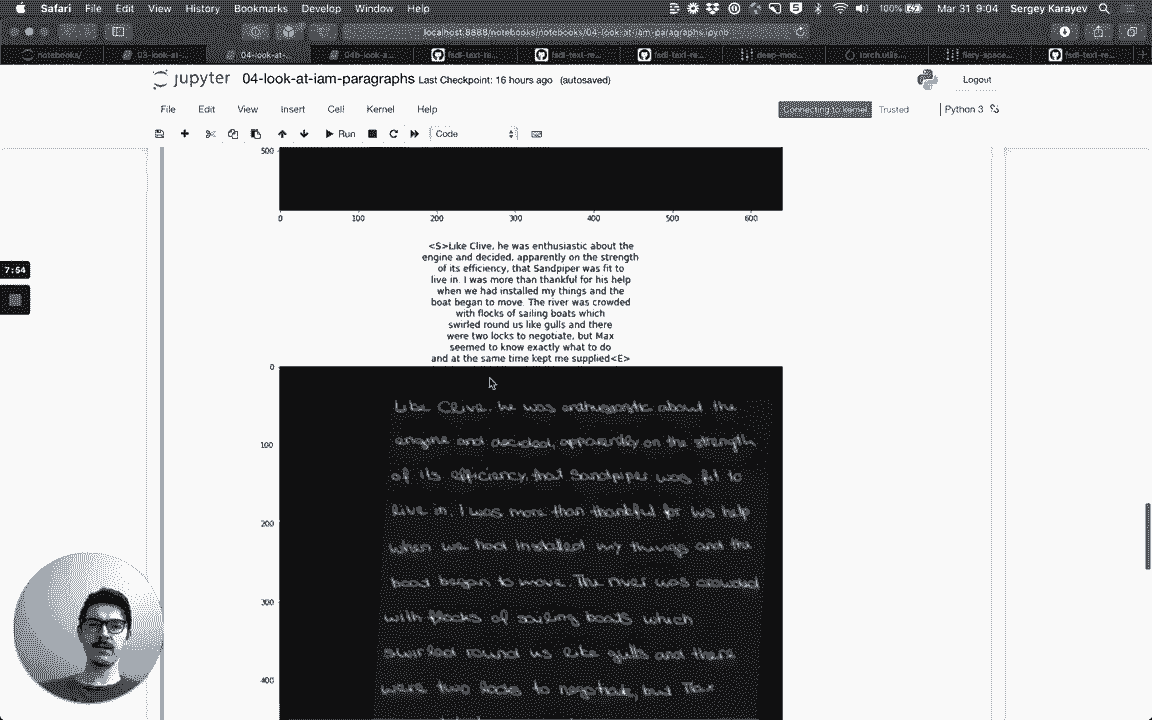 Safari File Edit View History Bookmarks Develop Window Help 100% Mar 31 9:04 Sergey Karayev
localhost:8888/notebooks/notebooks/04-look-at-iam-paragraphs.ipynb
notebooks/ 03-look-at- 04-look-at-... 04b-look-a... fsdl-text-re... fsdl-text-re... fsdl-text-re... deep-mod... torch.utils... fiery-space... fsdl-text-re...
jupyter 04-look-at-iam-paragraphs Last Checkpoint: 16 hours ago (autosaved)
Logout
File Edit View Insert Cell Kernel Help Connecting to kernel Trusted Python 3
Run Code
500
0 100 200 300 400 500 600
<S>Like Clive, he was enthusiastic about the
engine and decided, apparently on the strength
of its efficiency, that Sandpiper was fit to
live in. I was more than thankful for his help
when we had installed my things and the
boat began to move. The river was crowded
with flocks of sailing boats which
swirled round us like gulls and there
were two locks to negotiate, but Max
seemed to know exactly what to do
and at the same time kept me supplied<E>
0
Like Clive, he was enthusiastic about the
100
engine and decided, apparently on the strength
of its efficiency, that Sandpiper was fit to
live in. I was more than thankful for his help
200
when we had installed my things and the
boat began to move. The river was crowded
300
with flocks of sailing boats which
swirled round us like gulls and there
400
were two locks to negotiate, but Max
7:54